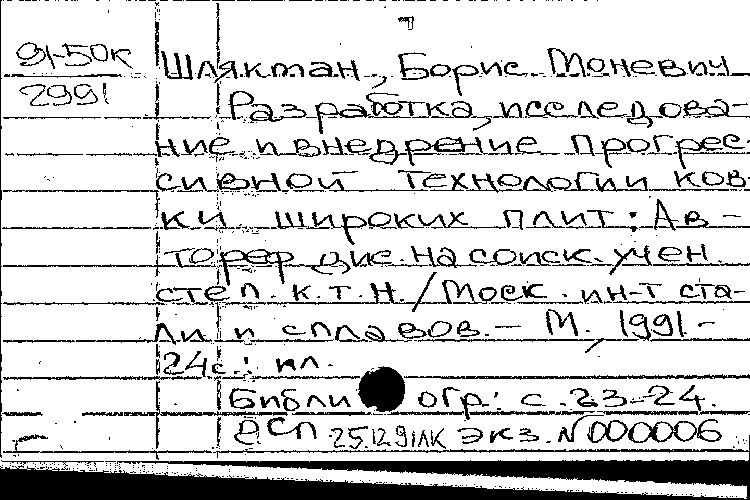 91-50к
2991
Шляктан, Борис Моневич
Разработка, исследова-
ние и внедрение прогрес-
сивной технологии ков-
ки широких плит: Ав-
тореф дис. на соиск. учен.
степ. к.т.н. / Моск. ин-т ста-
ли и сплавов. - М., 1991 -
24с.: ил.
Библиогр: с. 23-24.
ДСП 25.12.91 ЛК экз. N 000006